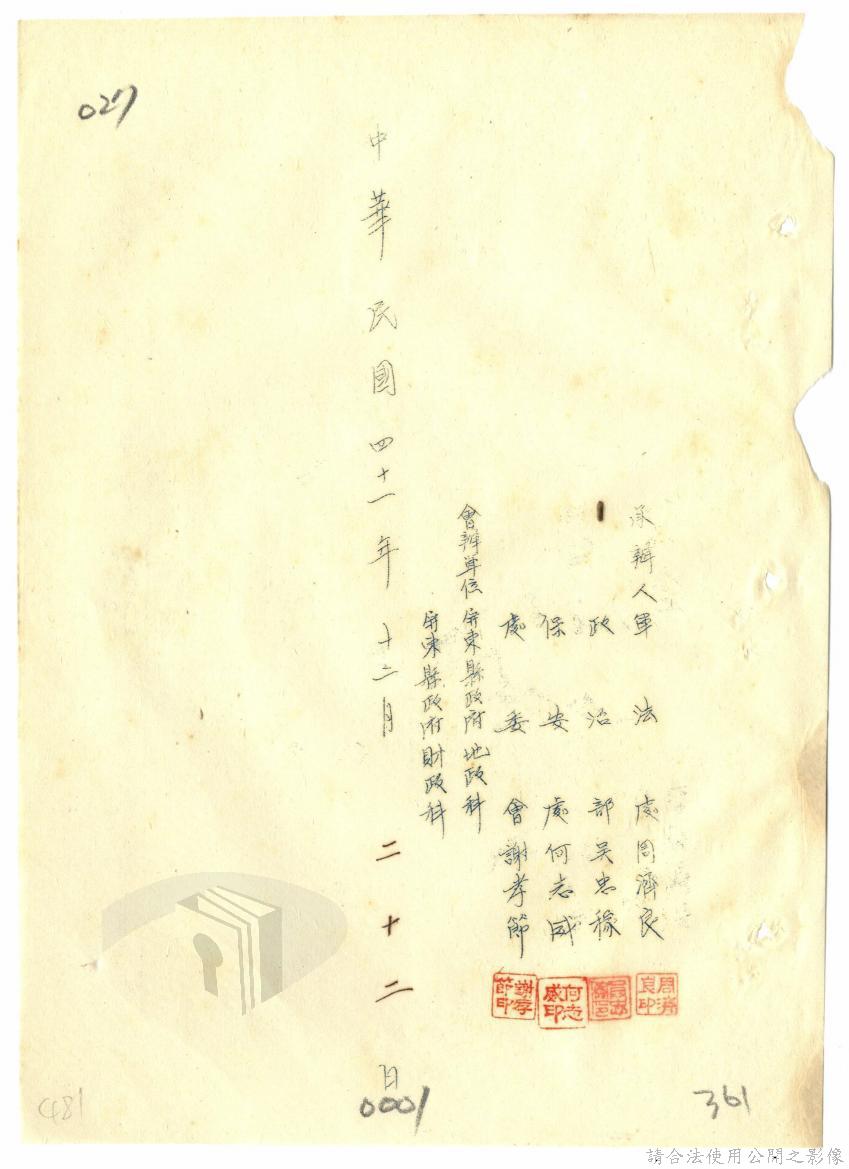 027
承辦人軍法處周濟良
政治部吳忠稼
保安處何志威
處委會謝孝節
周濟良印
何志威印
謝孝節印
會辦單位屏東縣政府地政科
屏東縣政府財政科
中華民國四十一年十二月二十二日
361
0001
481
請合法使用公開之影像